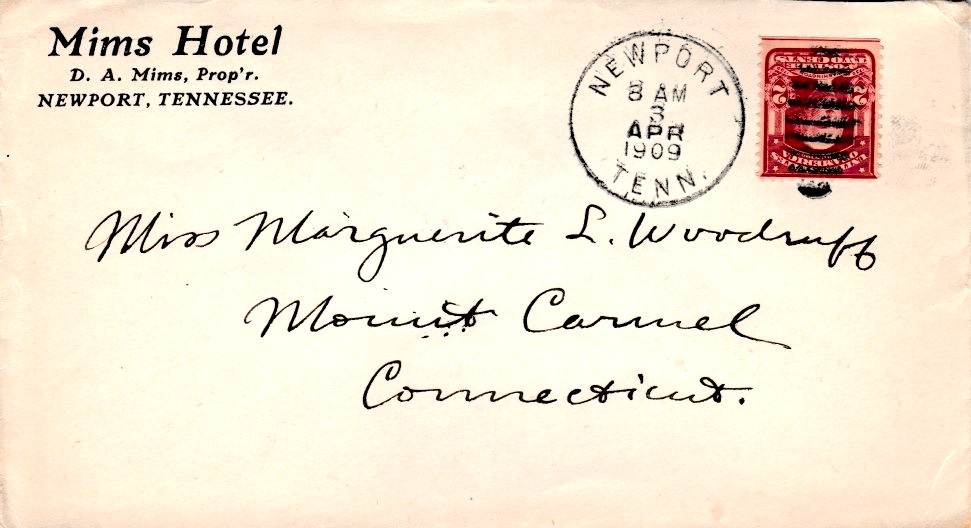 Mims Hotel
D. A. Mims, Prop'r.
NEWPORT, TENNESSEE.
NEWPORT
8 AM
3
APR
1909
TENN.
2 2
Miss Marguerite L. Woodruff
Mount Carmel
Connecticut.